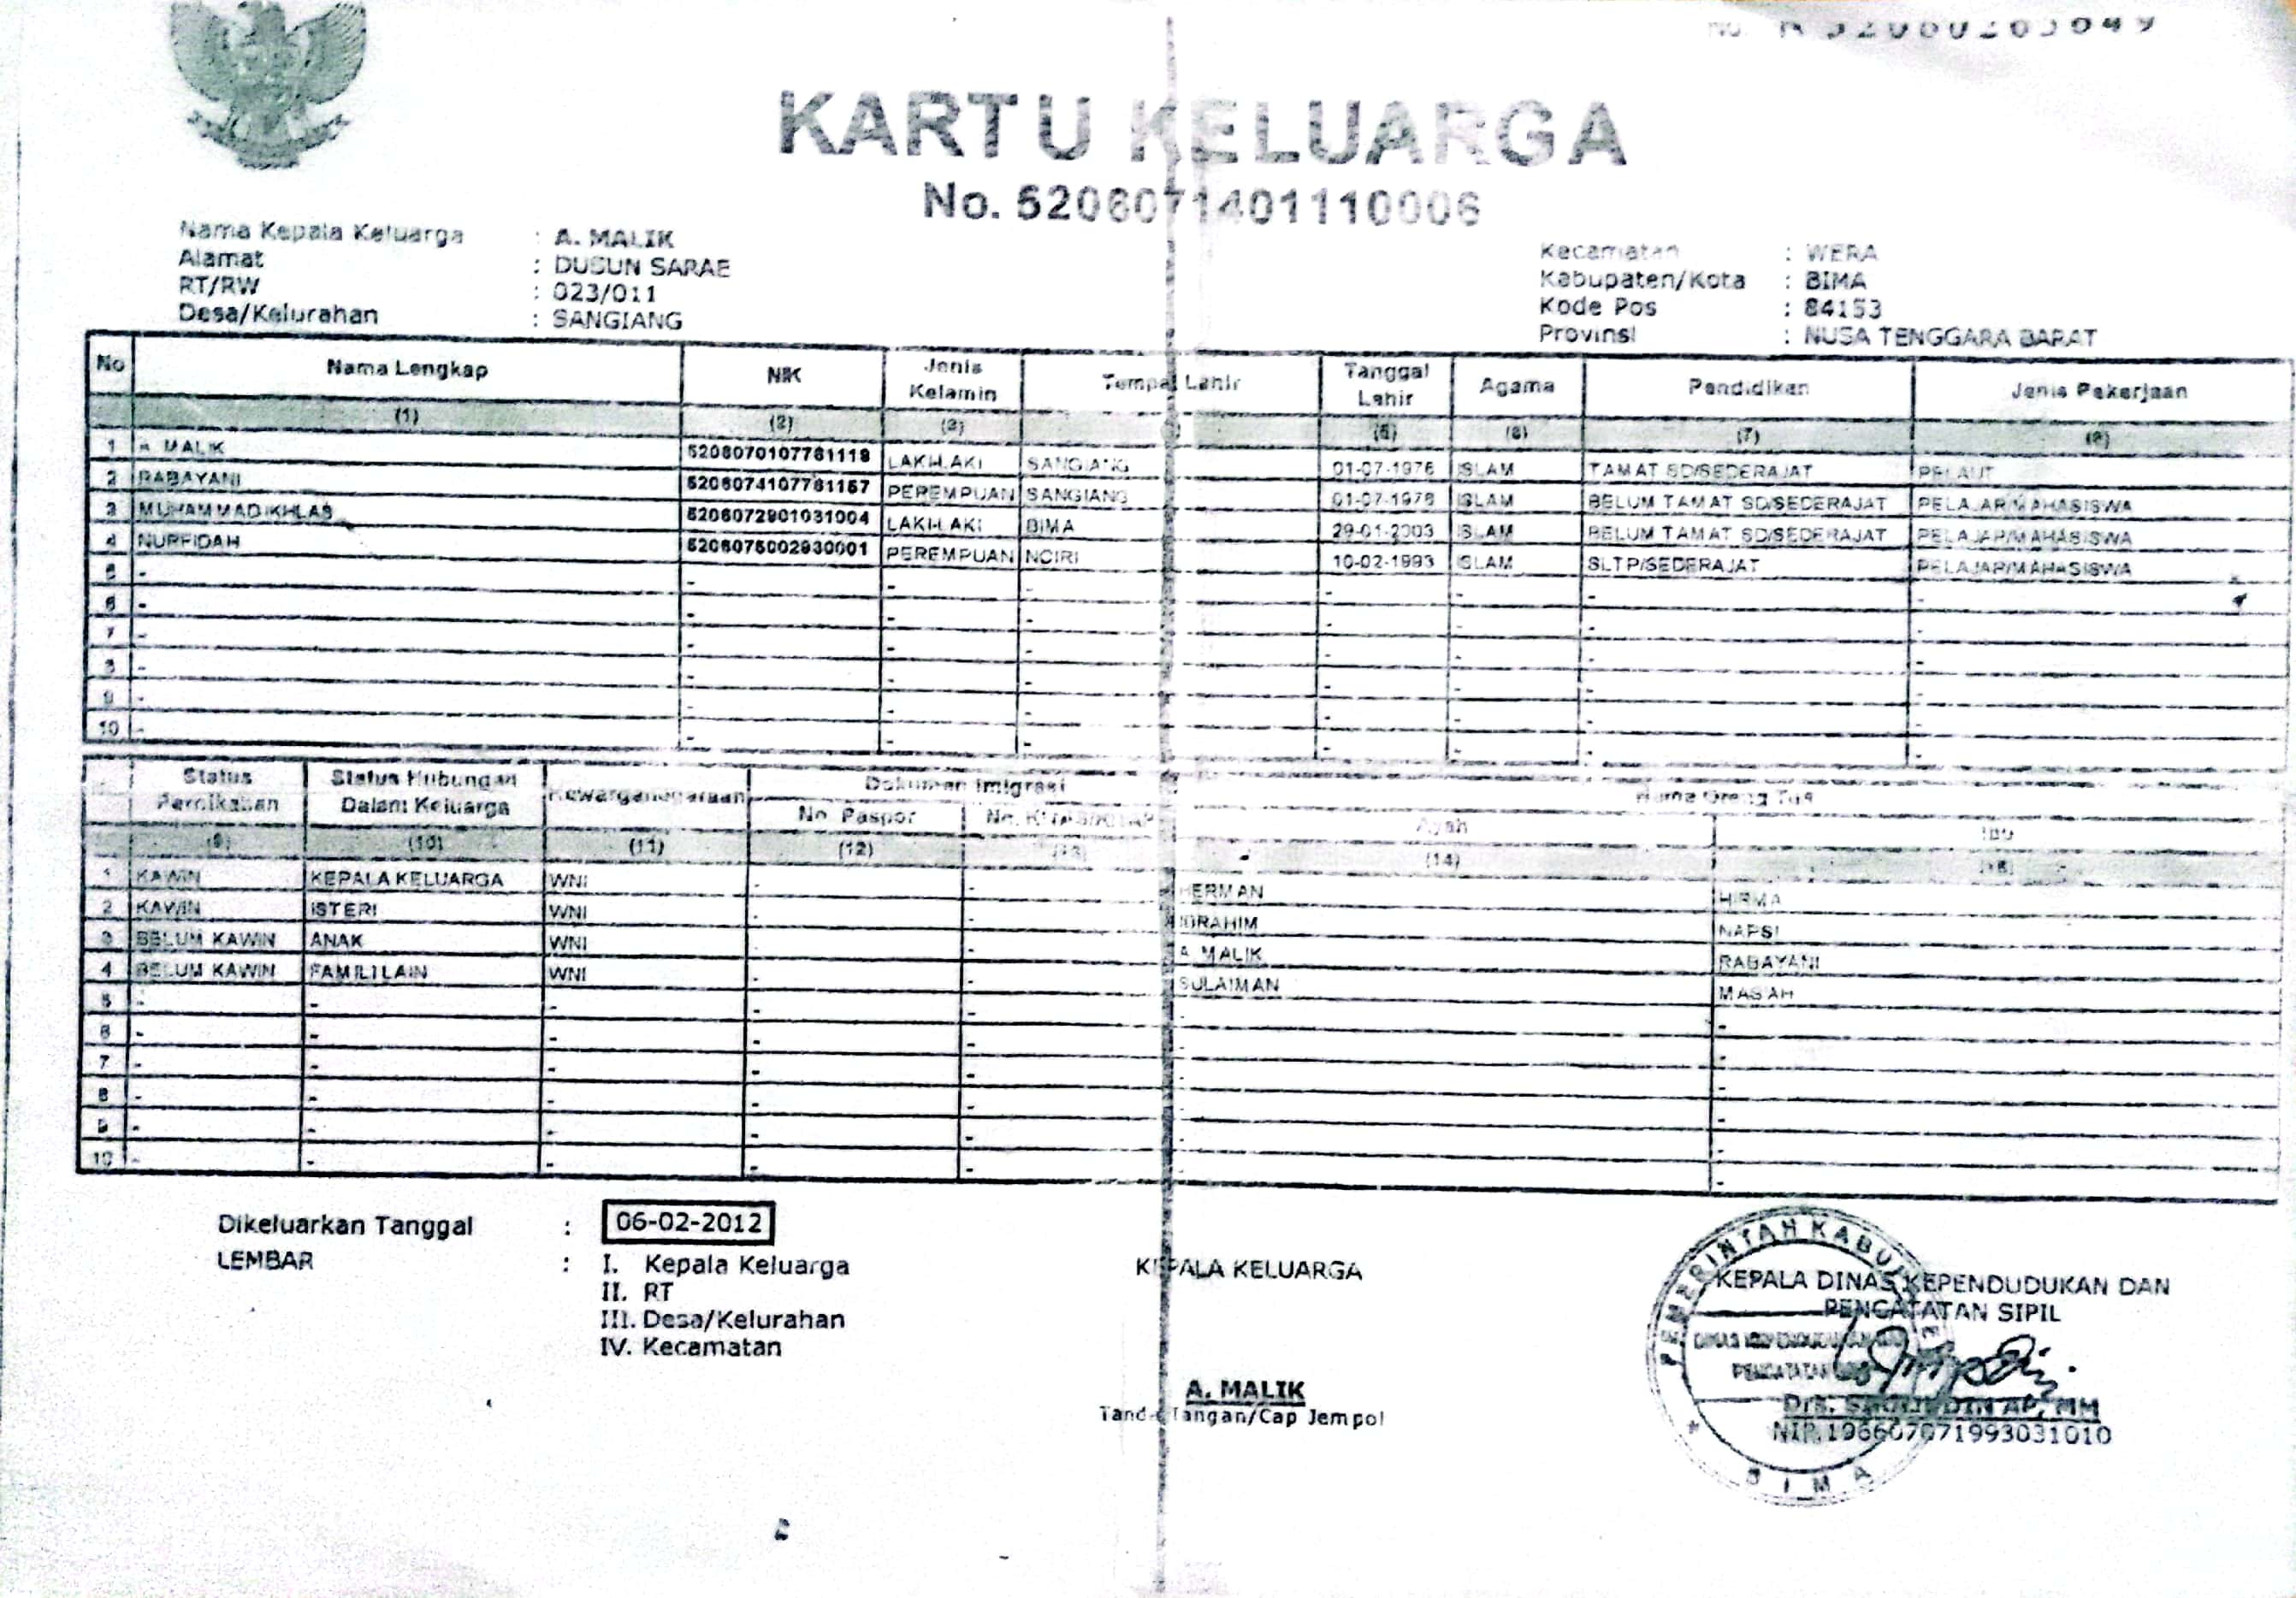 KARTU KELUARGA
No. 5206071401110006
Nama Kepala Keluarga : A. MALIK
Alamat : DUSUN SARAE
RT/RW : 023/011
Desa/Kelurahan : SANGIANG
Kecamatan : WERA
Kabupaten/Kota : BIMA
Kode Pos : 84153
Provinsi : NUSA TENGGARA BARAT
No Nama Lengkap NIK Jenis Kelamin Tempat Lahir Tanggal Lahir Agama Pendidikan Jenis Pekerjaan
(1) (2) (3) (5) (6) (7) (8)
1 A. MALIK LAKI-LAKI SANGIANG 01-07-1976 ISLAM TAMAT SD/SEDERAJAT PELAUT
2 RABAYANI PEREMPUAN SANGIANG 01-07-1978 ISLAM BELUM TAMAT SD/SEDERAJAT PELAJAR/MAHASISWA
3 MUHAMMAD IKHLAS 5206072901031004 LAKI-LAKI BIMA 29-01-2003 ISLAM BELUM TAMAT SD/SEDERAJAT PELAJAR/MAHASISWA
4 NURFIDAH 5206075002930001 PEREMPUAN NCIRI 10-02-1993 ISLAM SLTP/SEDERAJAT PELAJAR/MAHASISWA
5 - - - - - - - -
6 - - - - - - - -
7 - - - - - - - -
8 - - - - - - - -
9 - - - - - - - -
10 - - - - - - - -
Status Pernikahan Status Hubungan Dalam Keluarga Kewarganegaraan Dokumen Imigrasi Nama Orang Tua
No. Paspor Ayah Ibu
(9) (10) (11) (12) (13) (14) (15)
1 KAWIN KEPALA KELUARGA WNI - - HERMAN HIRMA
2 KAWIN ISTERI WNI - - IBRAHIM NAPSI
3 BELUM KAWIN ANAK WNI - - A. MALIK RABAYANI
4 BELUM KAWIN FAMILI LAIN WNI - - SULAIMAN MASAH
5 - - - - - - -
6 - - - - - - -
7 - - - - - - -
8 - - - - - - -
9 - - - - - - -
10 - - - - - - -
Dikeluarkan Tanggal : 06-02-2012
LEMBAR : I. Kepala Keluarga
II. RT
III. Desa/Kelurahan
IV. Kecamatan
KEPALA KELUARGA
A. MALIK
Tanda Tangan/Cap Jempol
PEMERINTAH KABUP
KEPALA DINAS KEPENDUDUKAN DAN
PENCATATAN SIPIL
DINAS KEPENDUDUKAN DAN
PENCATATAN
Drs. AP, MM
NIP. 196607071993031010
BIMA